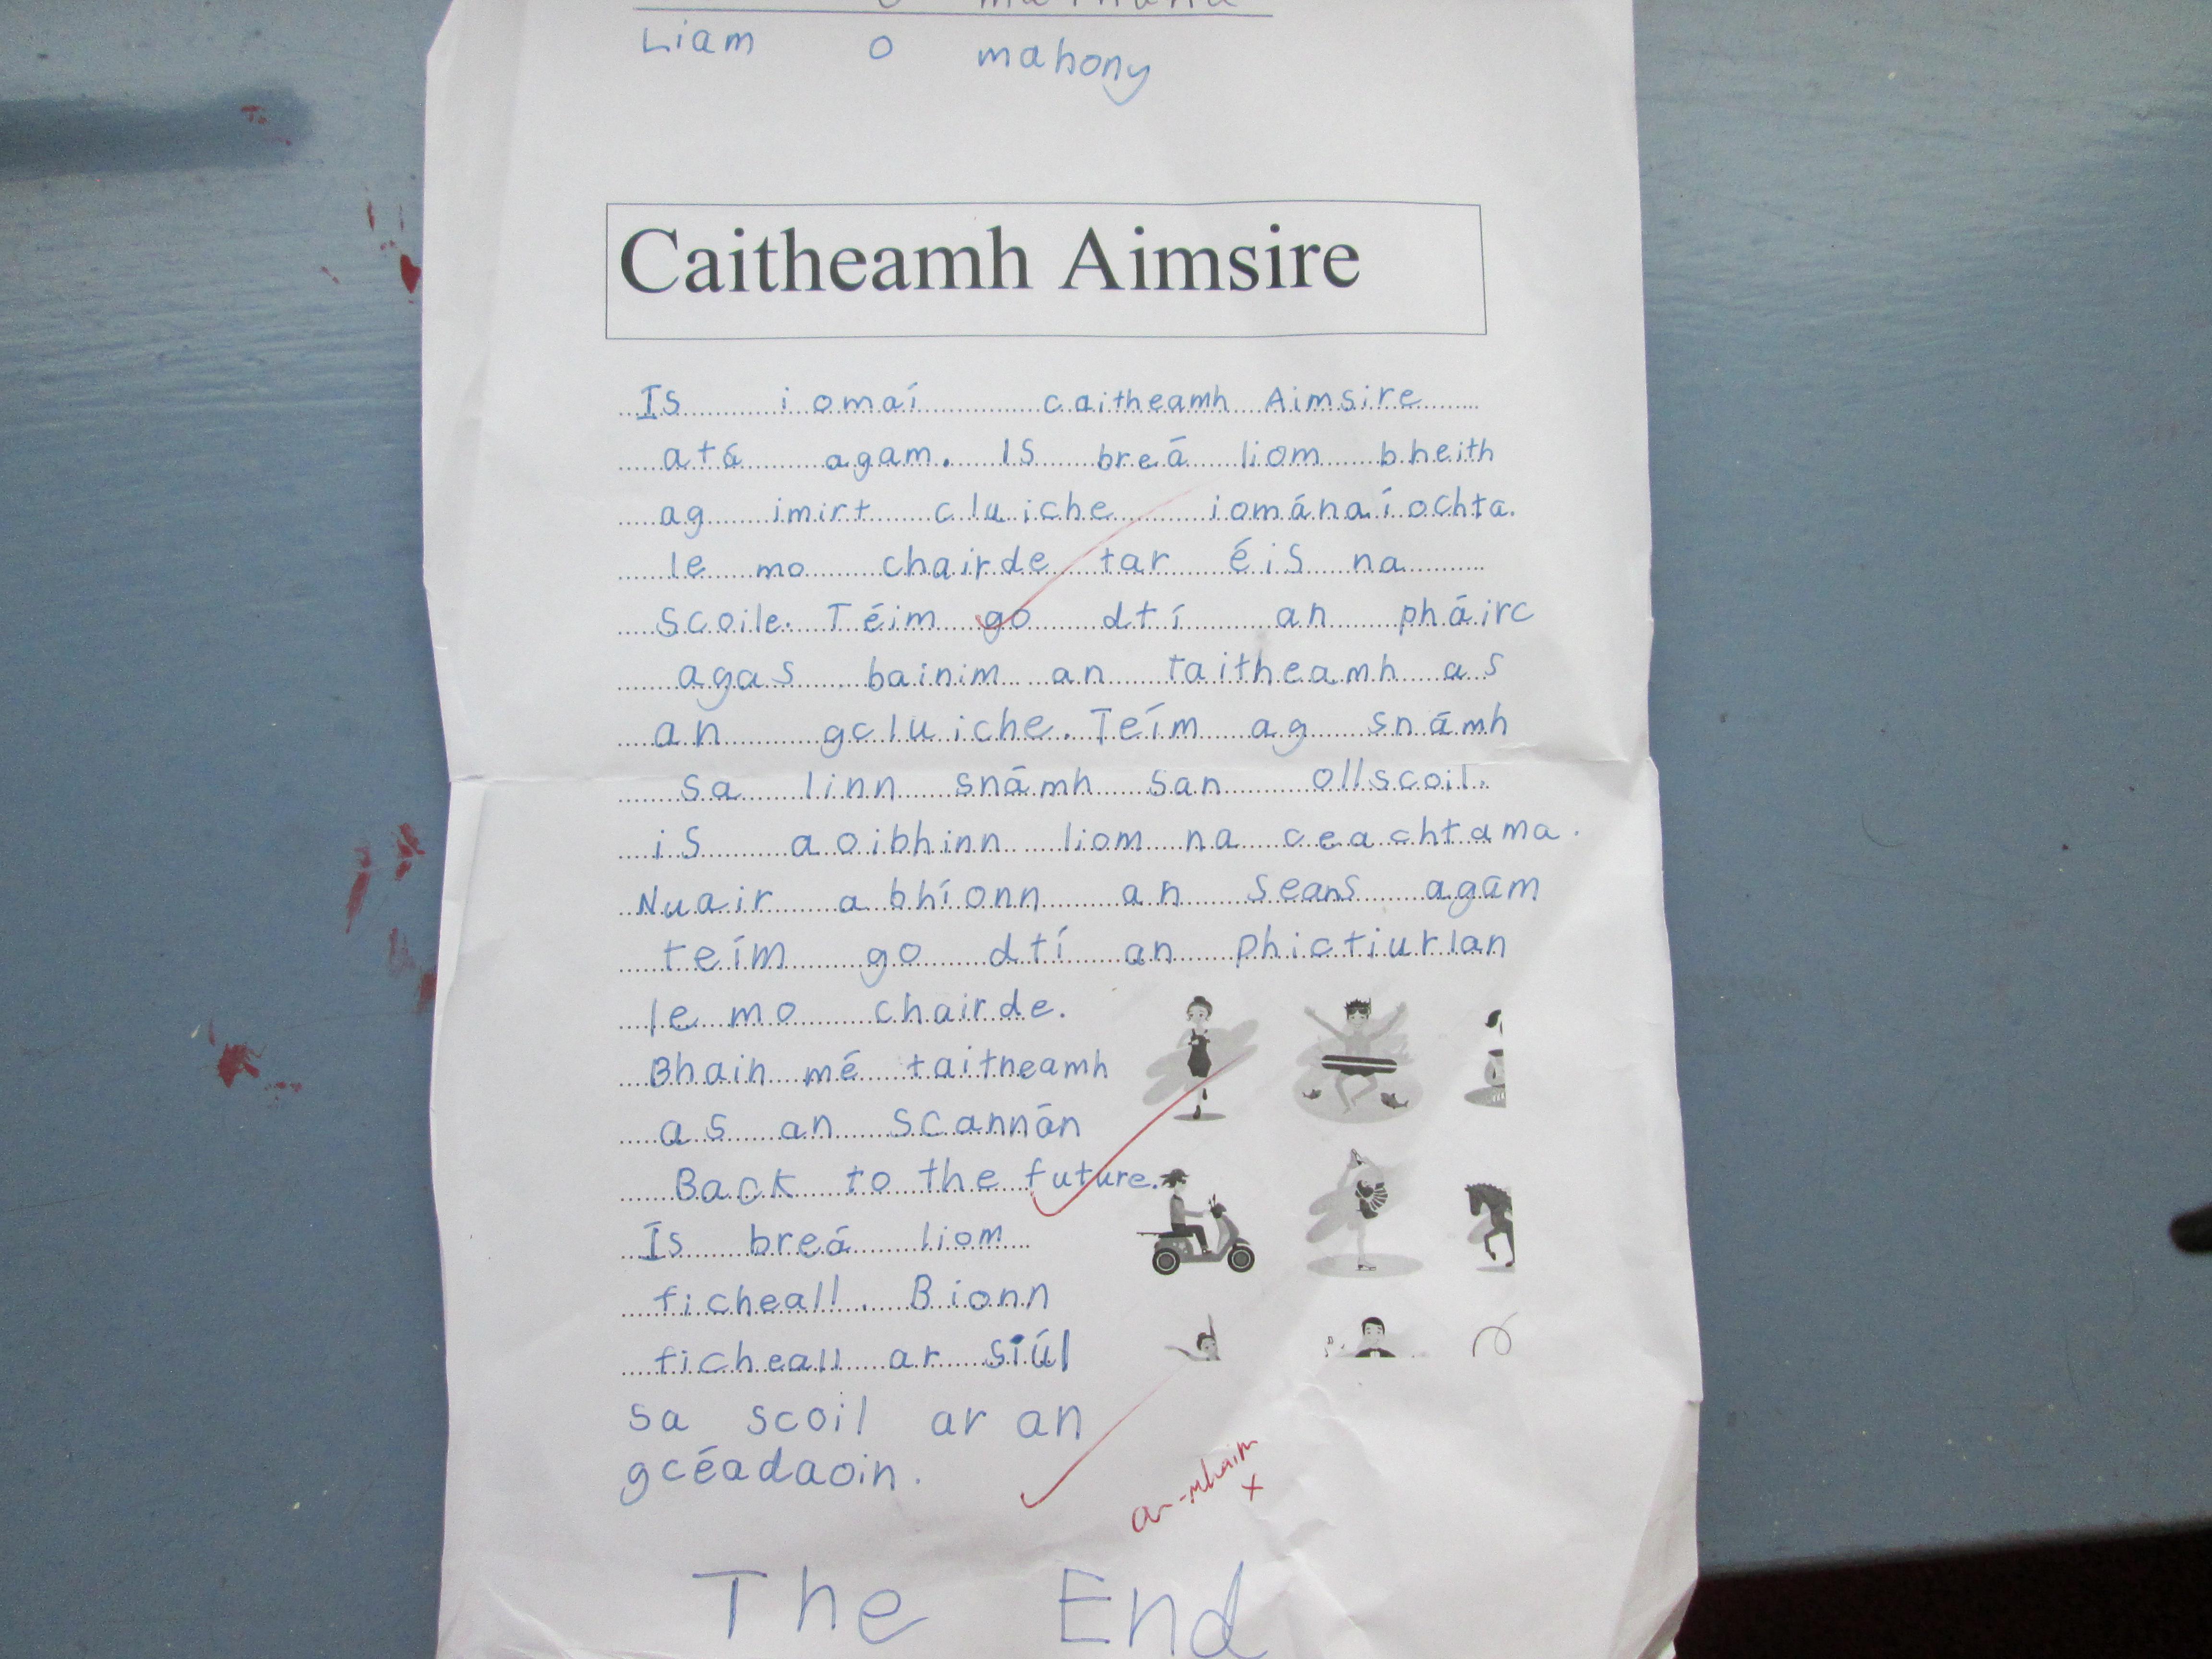 Liam O mahony
Caitheamh Aimsire
Is iomaí caitheamh Aimsire
atá agam. Is breá liom bheith
ag imirt cluiche iománaíochta.
le mo chairde tar éis na
scoile. Téim go dtí an pháirc
agas bainim an taitheamh as
an gcluiche. Teím ag snámh
sa linn snámh san ollscoil.
is aoibhinn liom na ceachtama.
Nuair a bhíonn an seans agam
teím go dtí an phictiurlan
le mo chairde.
Bhain mé taitneamh
as an scannán
Back to the future.
Is breá liom
ficheall. Bionn
ficheall ar siúl
sa scoil ar an
gcéadaoin.
an-mhaim
x
The End